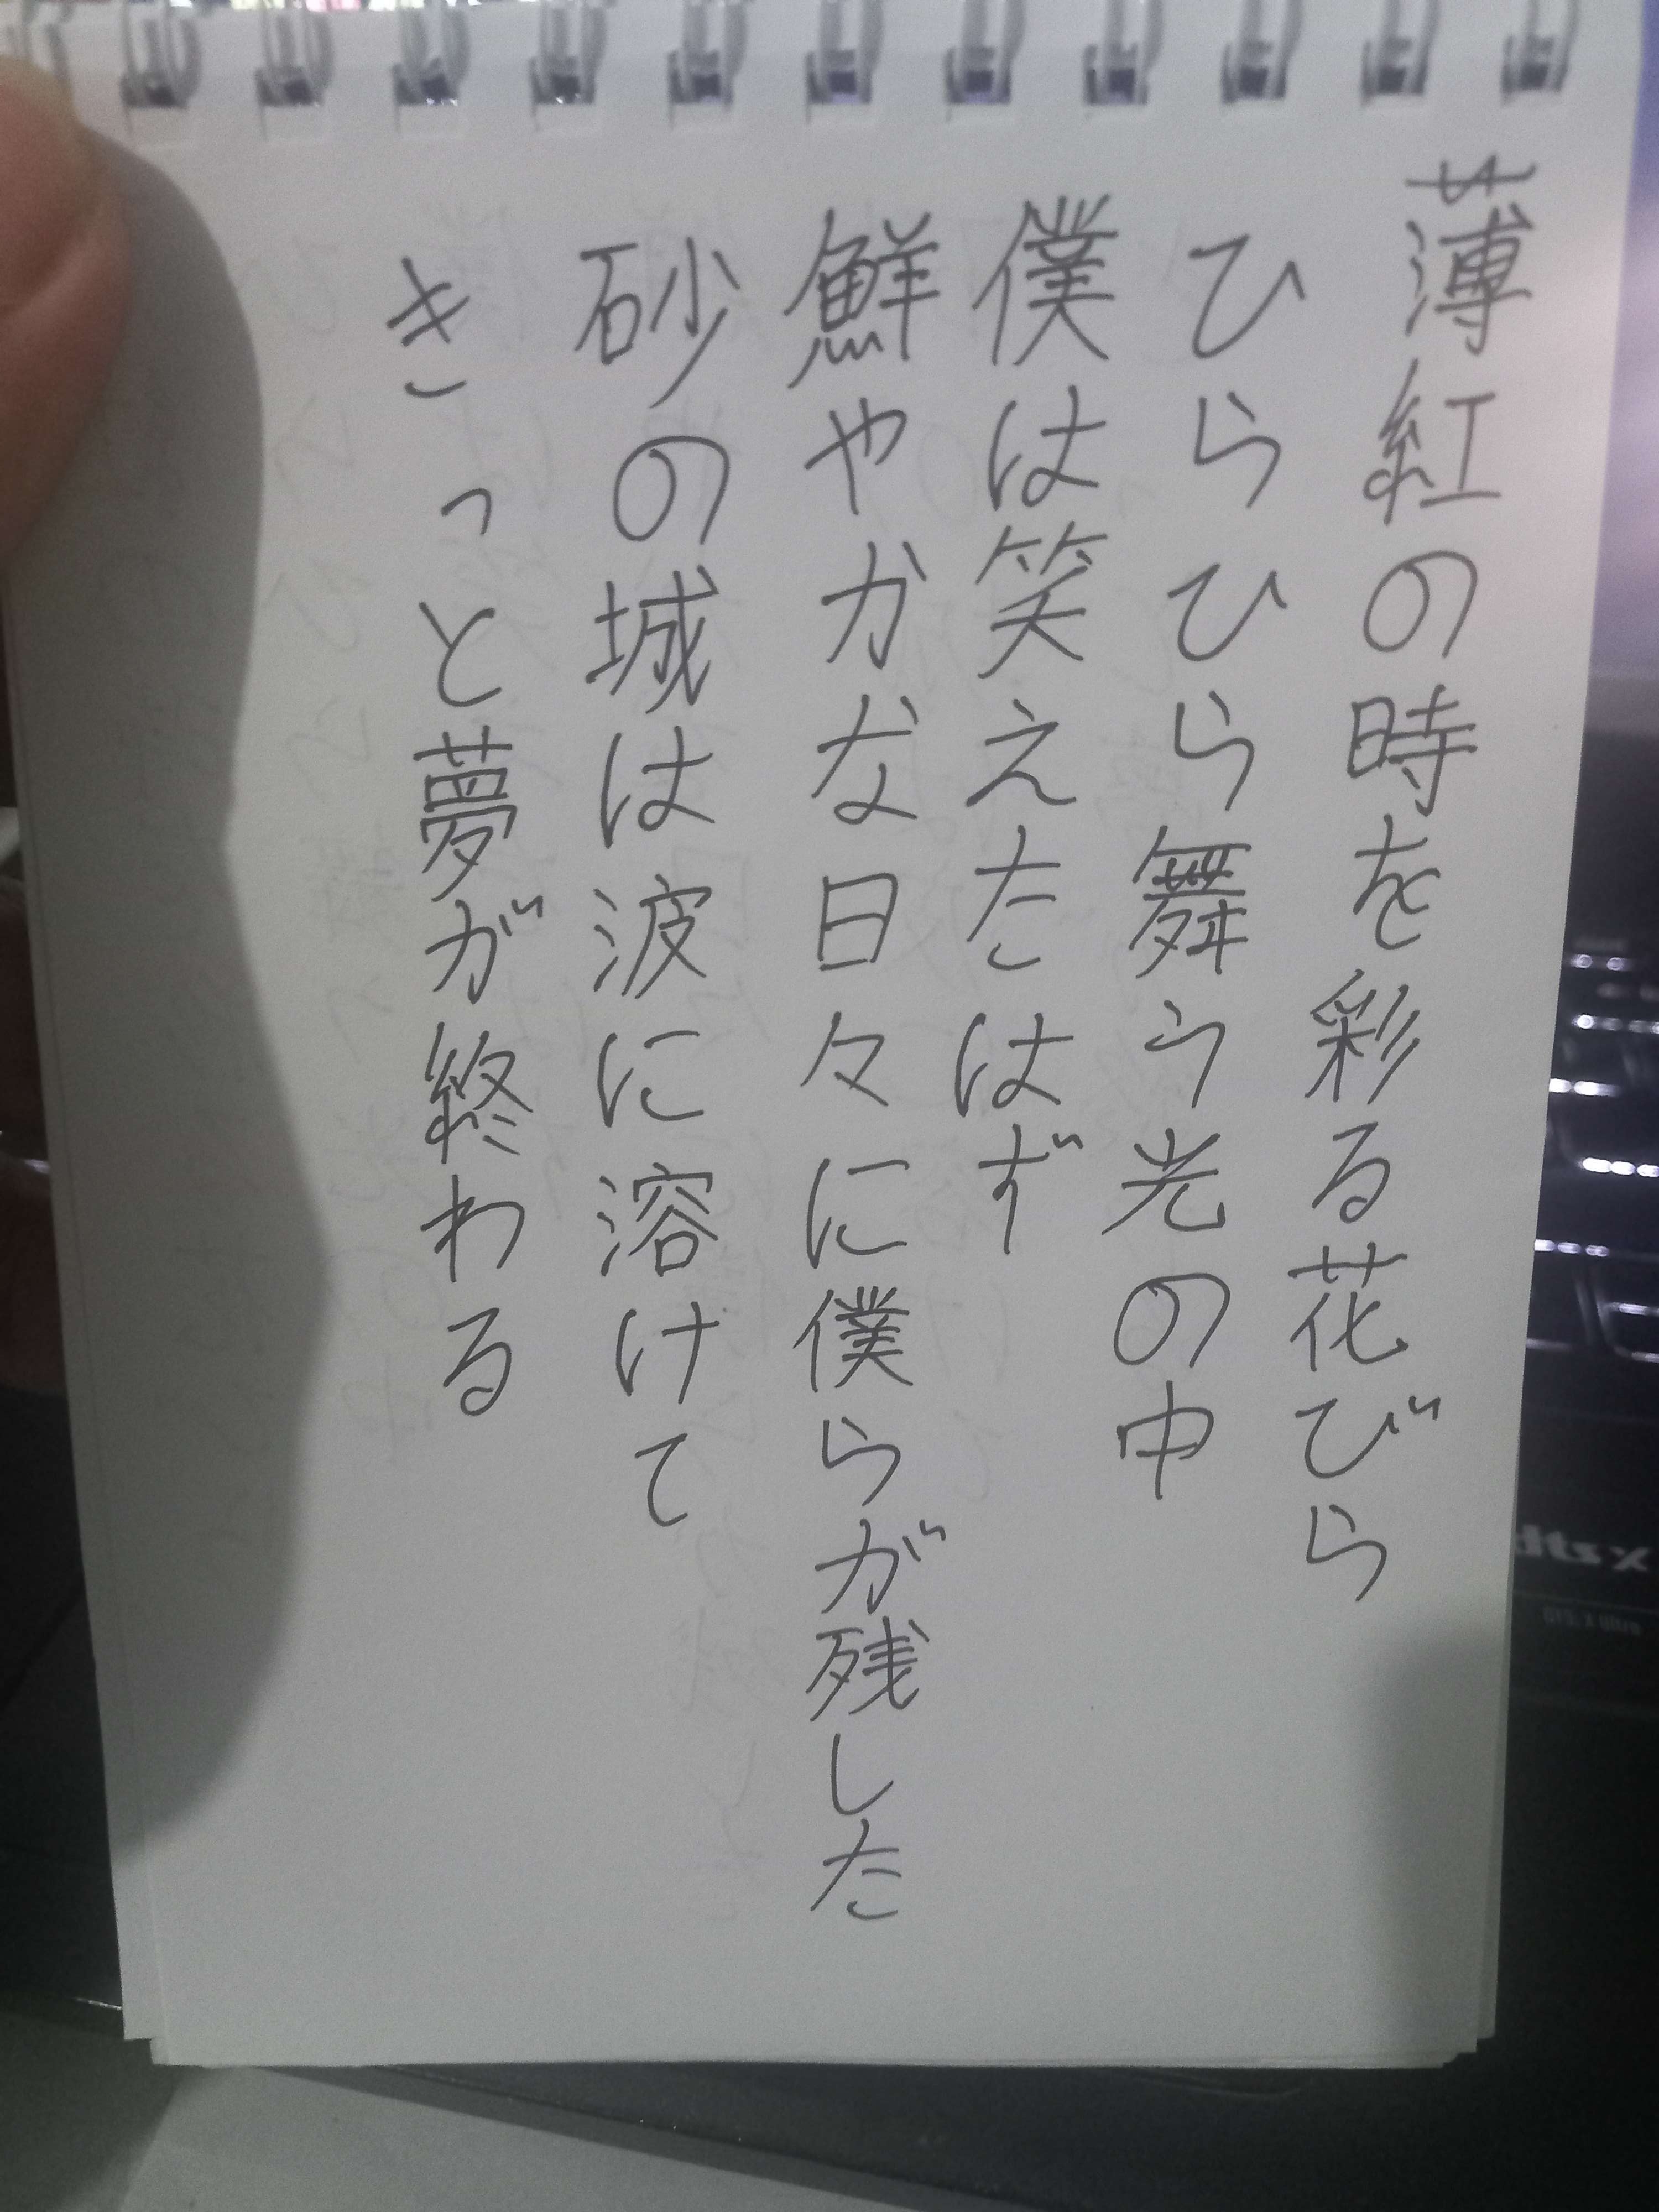 薄紅の時を彩る花びら
ひらひら舞う光の中
僕は笑えたはず
鮮やかな日々に僕らが残した
砂の城は波に溶けて
きっと夢が終わる
dts X
DTS:X Ultra